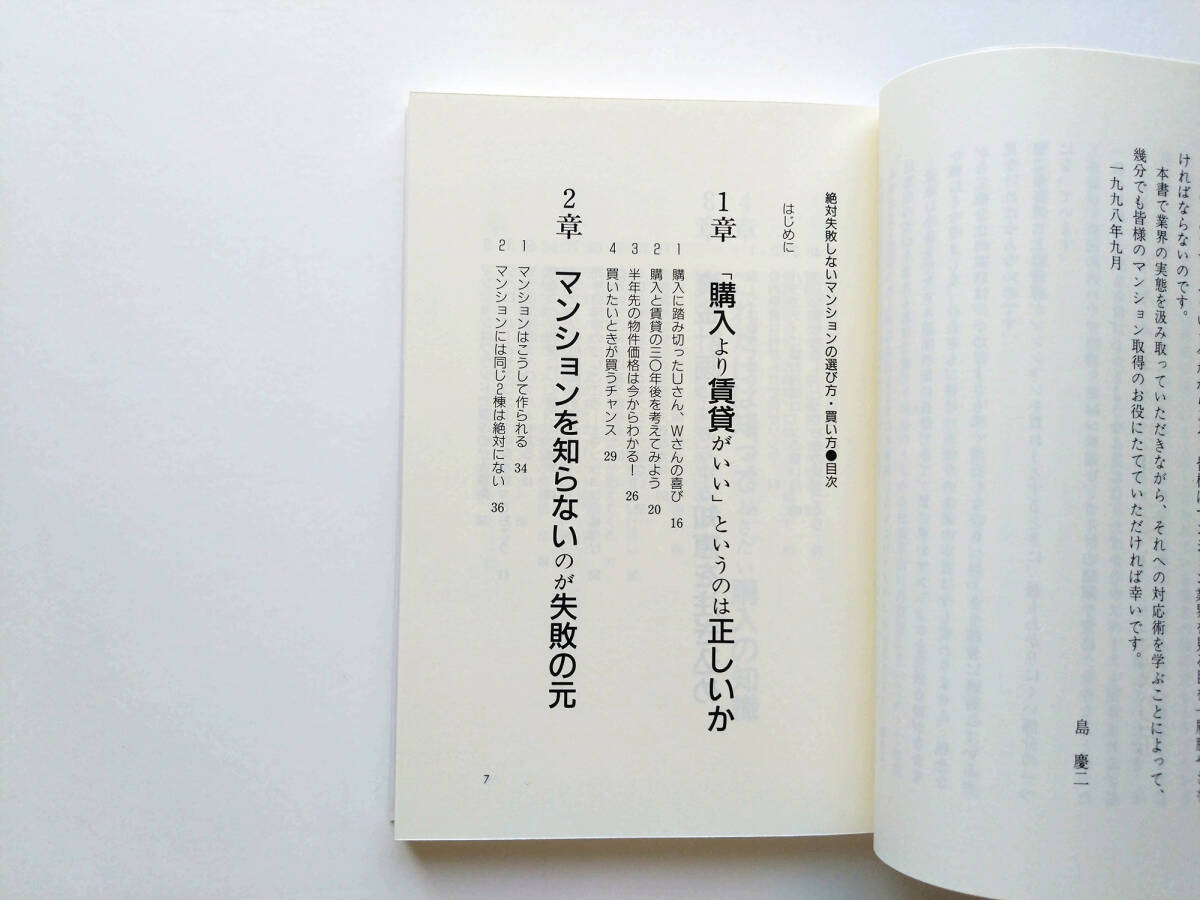 ければならないのです。
本書で業界の実態を汲み取っていただきながら、それへの対応術を学ぶことによって、
幾分でも皆様のマンション取得のお役にたてていただければ幸いです。
一九九八年九月
島 慶二
絶対失敗しないマンションの選び方・買い方●目次
はじめに
1章 「購入より賃貸がいい」というのは正しいか
1 購入に踏み切ったUさん、Wさんの喜び 16
2 購入と賃貸の三〇年後を考えてみよう 20
3 半年先の物件価格は今からわかる! 26
4 買いたいときが買うチャンス 29
2章 マンションを知らないのが失敗の元
1 マンションはこうして作られる 34
2 マンションには同じ2棟は絶対にない 36
7